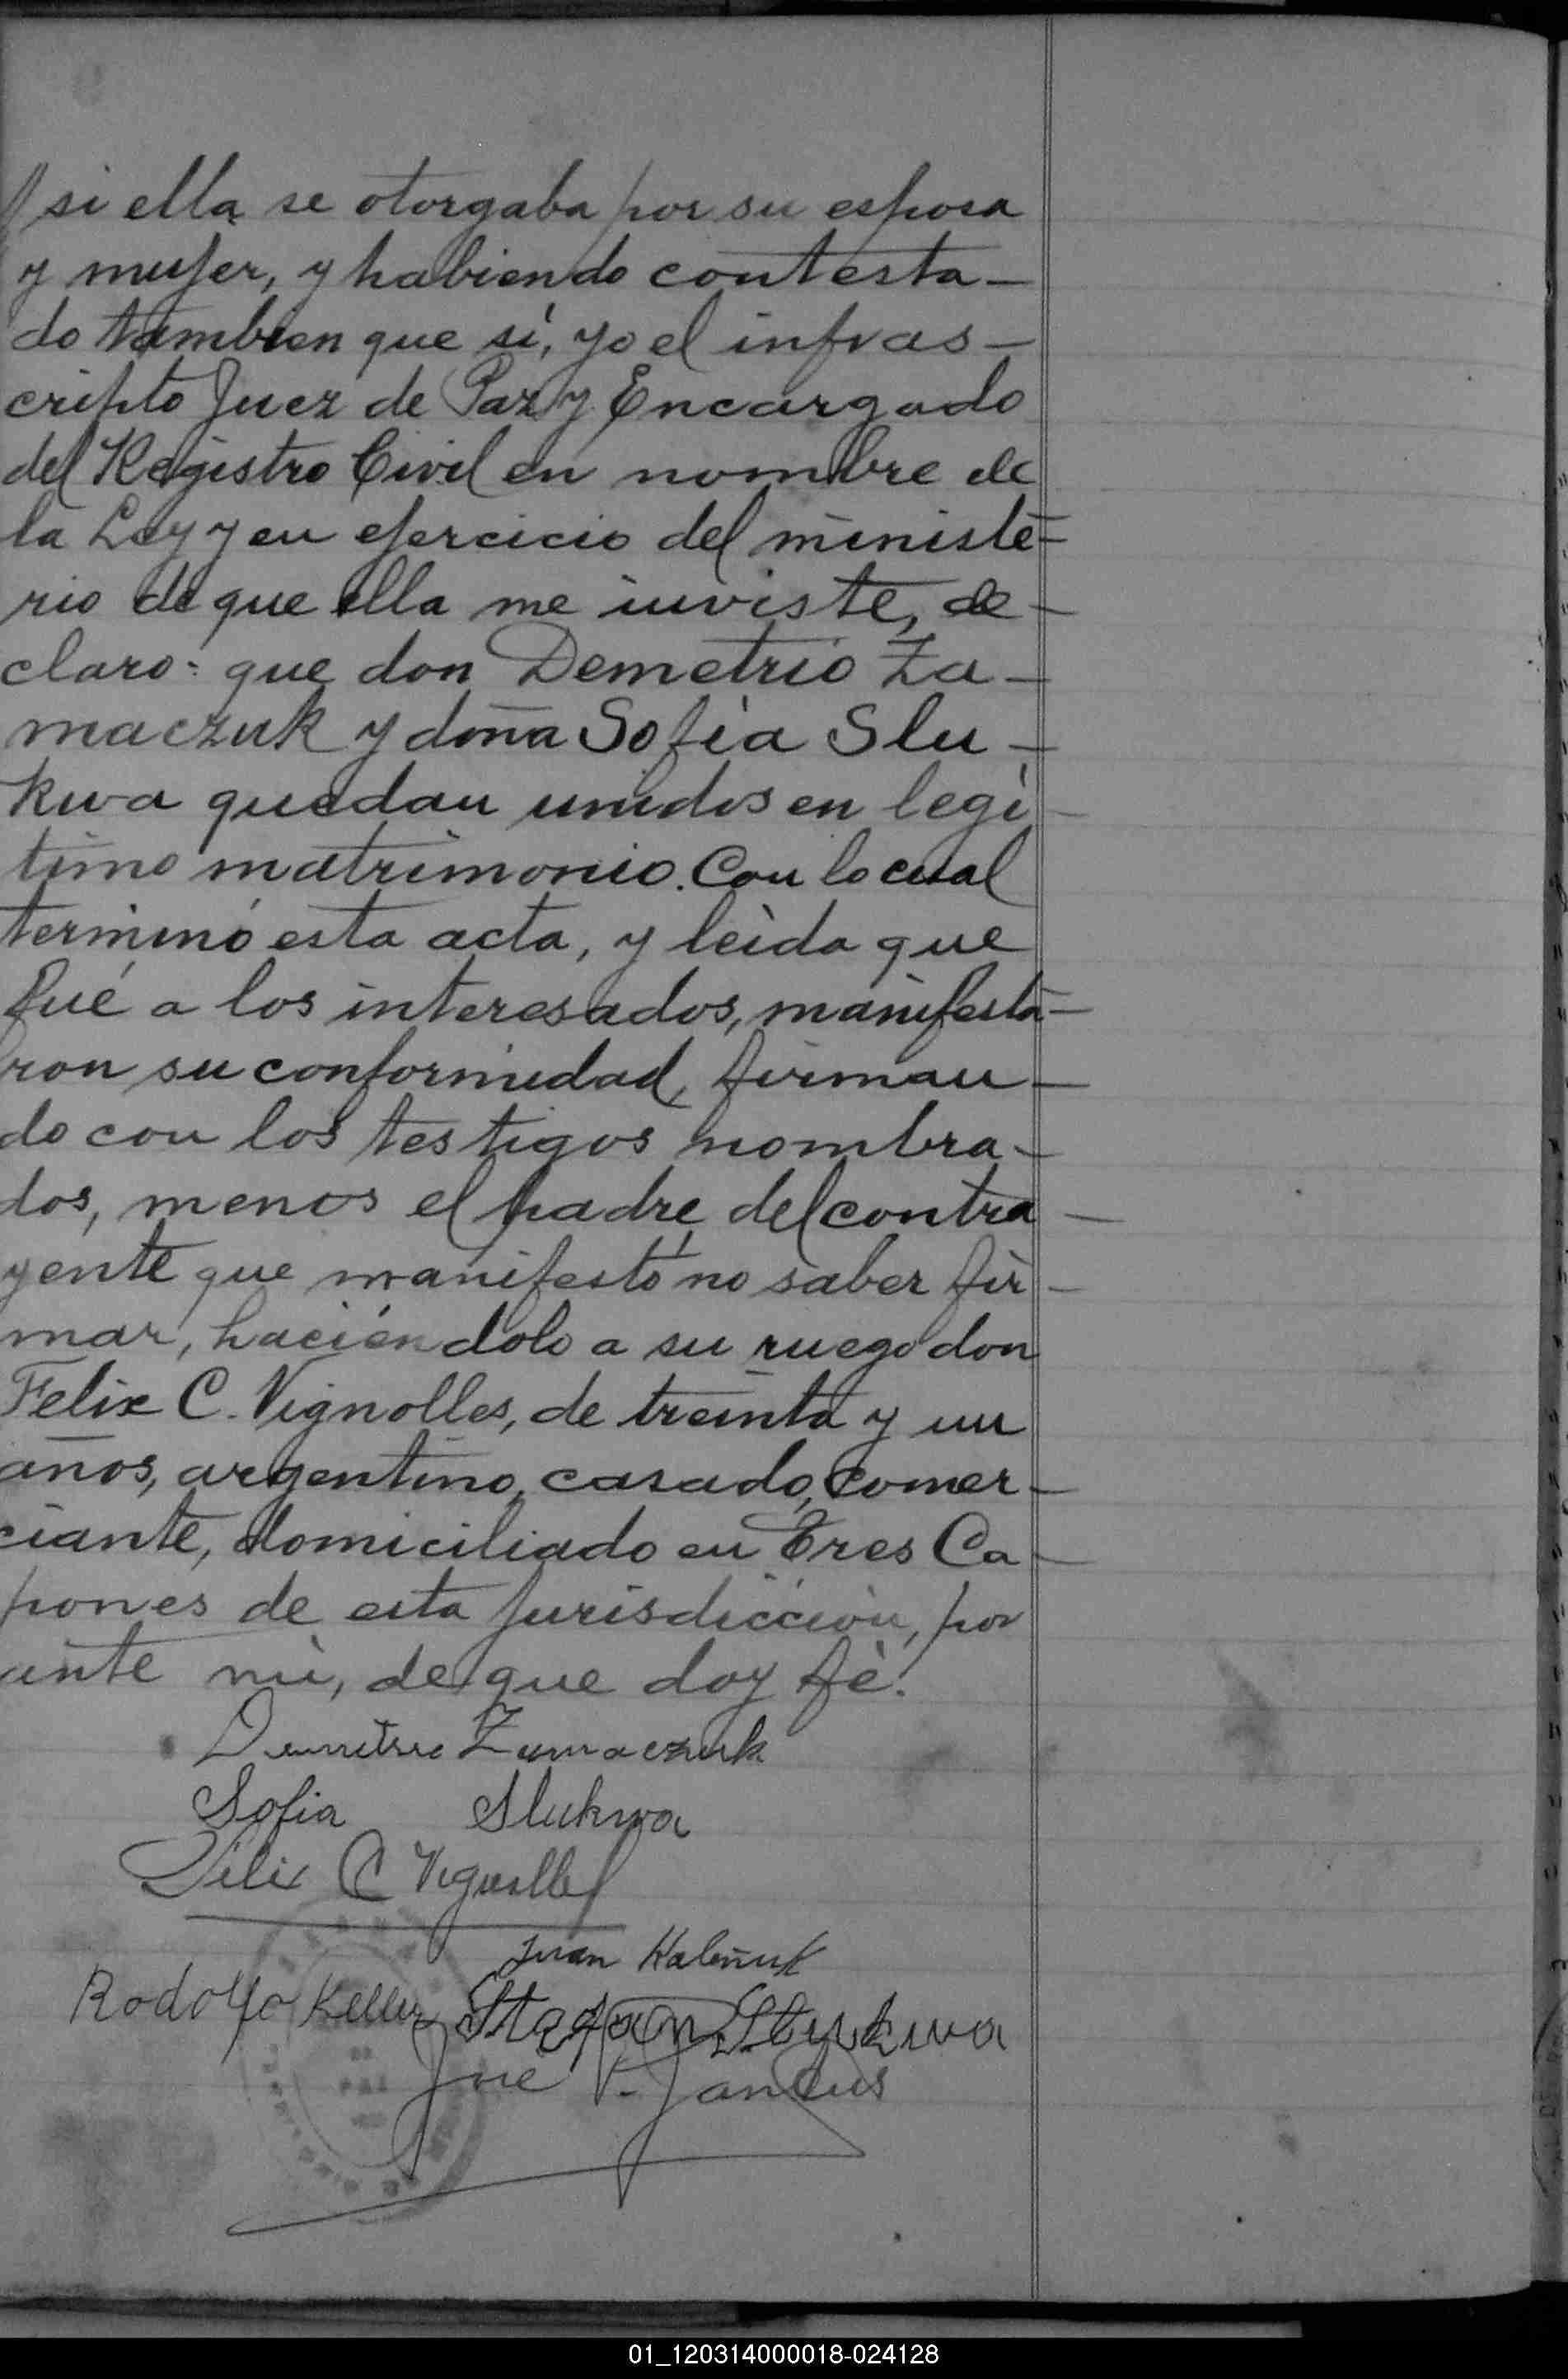 si ella se otorgaba por su esposa
y mujer, y habiendo contesta-
do tambien que sí, yo el infras-
cripto Juez de Paz y Encargado
del Registro Civil en nombre de
la Ley y en ejercicio del ministe-
rio de que ella me inviste, de-
claro: que don Demetrio Za-
maczuk y doña Sofía Slu-
kwa quedan unidos en legí-
timo matrimonio. Con lo cual
terminó esta acta, y leída que
fué a los interesados, manifesta-
ron su conformidad, firman-
do con los testigos nombra-
dos, menos el padre del contra-
yente que manifestó no saber fir-
mar, haciéndolo a su ruego don
Felix C. Vignolles, de treinta y un
años, argentino, casado, comer-
ciante, domiciliado en Tres Ca-
pones de esta jurisdicción, por
ante mí, de que doy fé.
Zamaczuk
Sofia Slukwa
Felix C Vignolles
Juan
Rodolfo Keller
José
PAZ
01_120314000018-024128